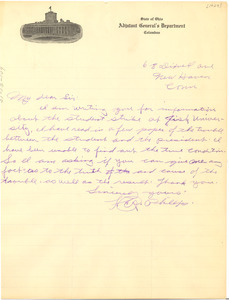 State of Ohio
Adjutant General's Department
Columbus
New Haven
Conn
My dear Sir:
I am writing you for information
about the student strike at Fisk Univer-
sity. I have read in a few papers of the trouble
between the student and the president. I
have been unable to find out the true condition.
So I am asking if you can give me any
facts as to the truth of the and cause of the
trouble as well as the result. Thank you.
Sincerely yours